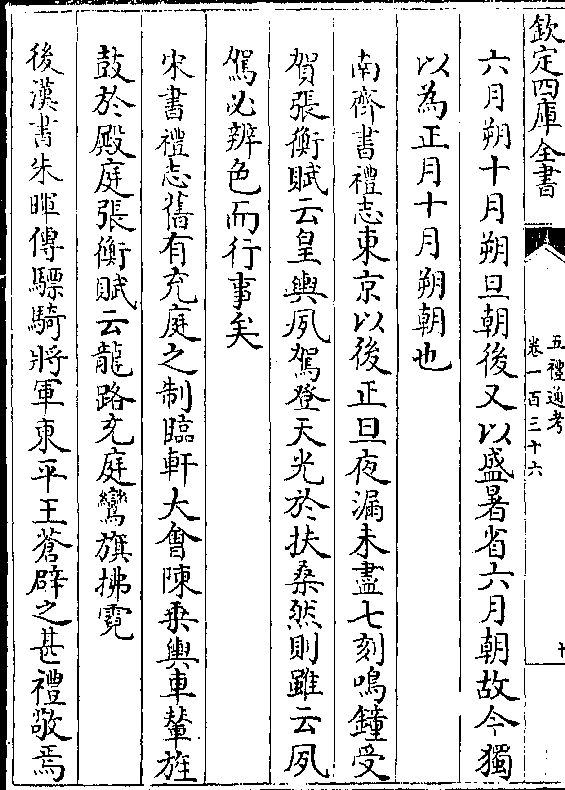 欽定四庫全書
五禮通考
卷一百三十六
六月朔十月朔旦朝後又以盛暑省六月朝故今獨
以為正月十月朔朝也
南齊書禮志東京以後正旦夜漏未盡七刻鳴鐘受
賀張衡賦云皇輿夙駕登天光於扶桑然則雖云夙
駕必辨色而行事矣
宋書禮志舊有充庭之制臨軒大會陳乗輿車輦旌
鼓於殿庭張衡賦云龍路充庭鸞旗拂霓
後漢書朱暉傳驃騎將軍東平王蒼辟之甚禮敬焉